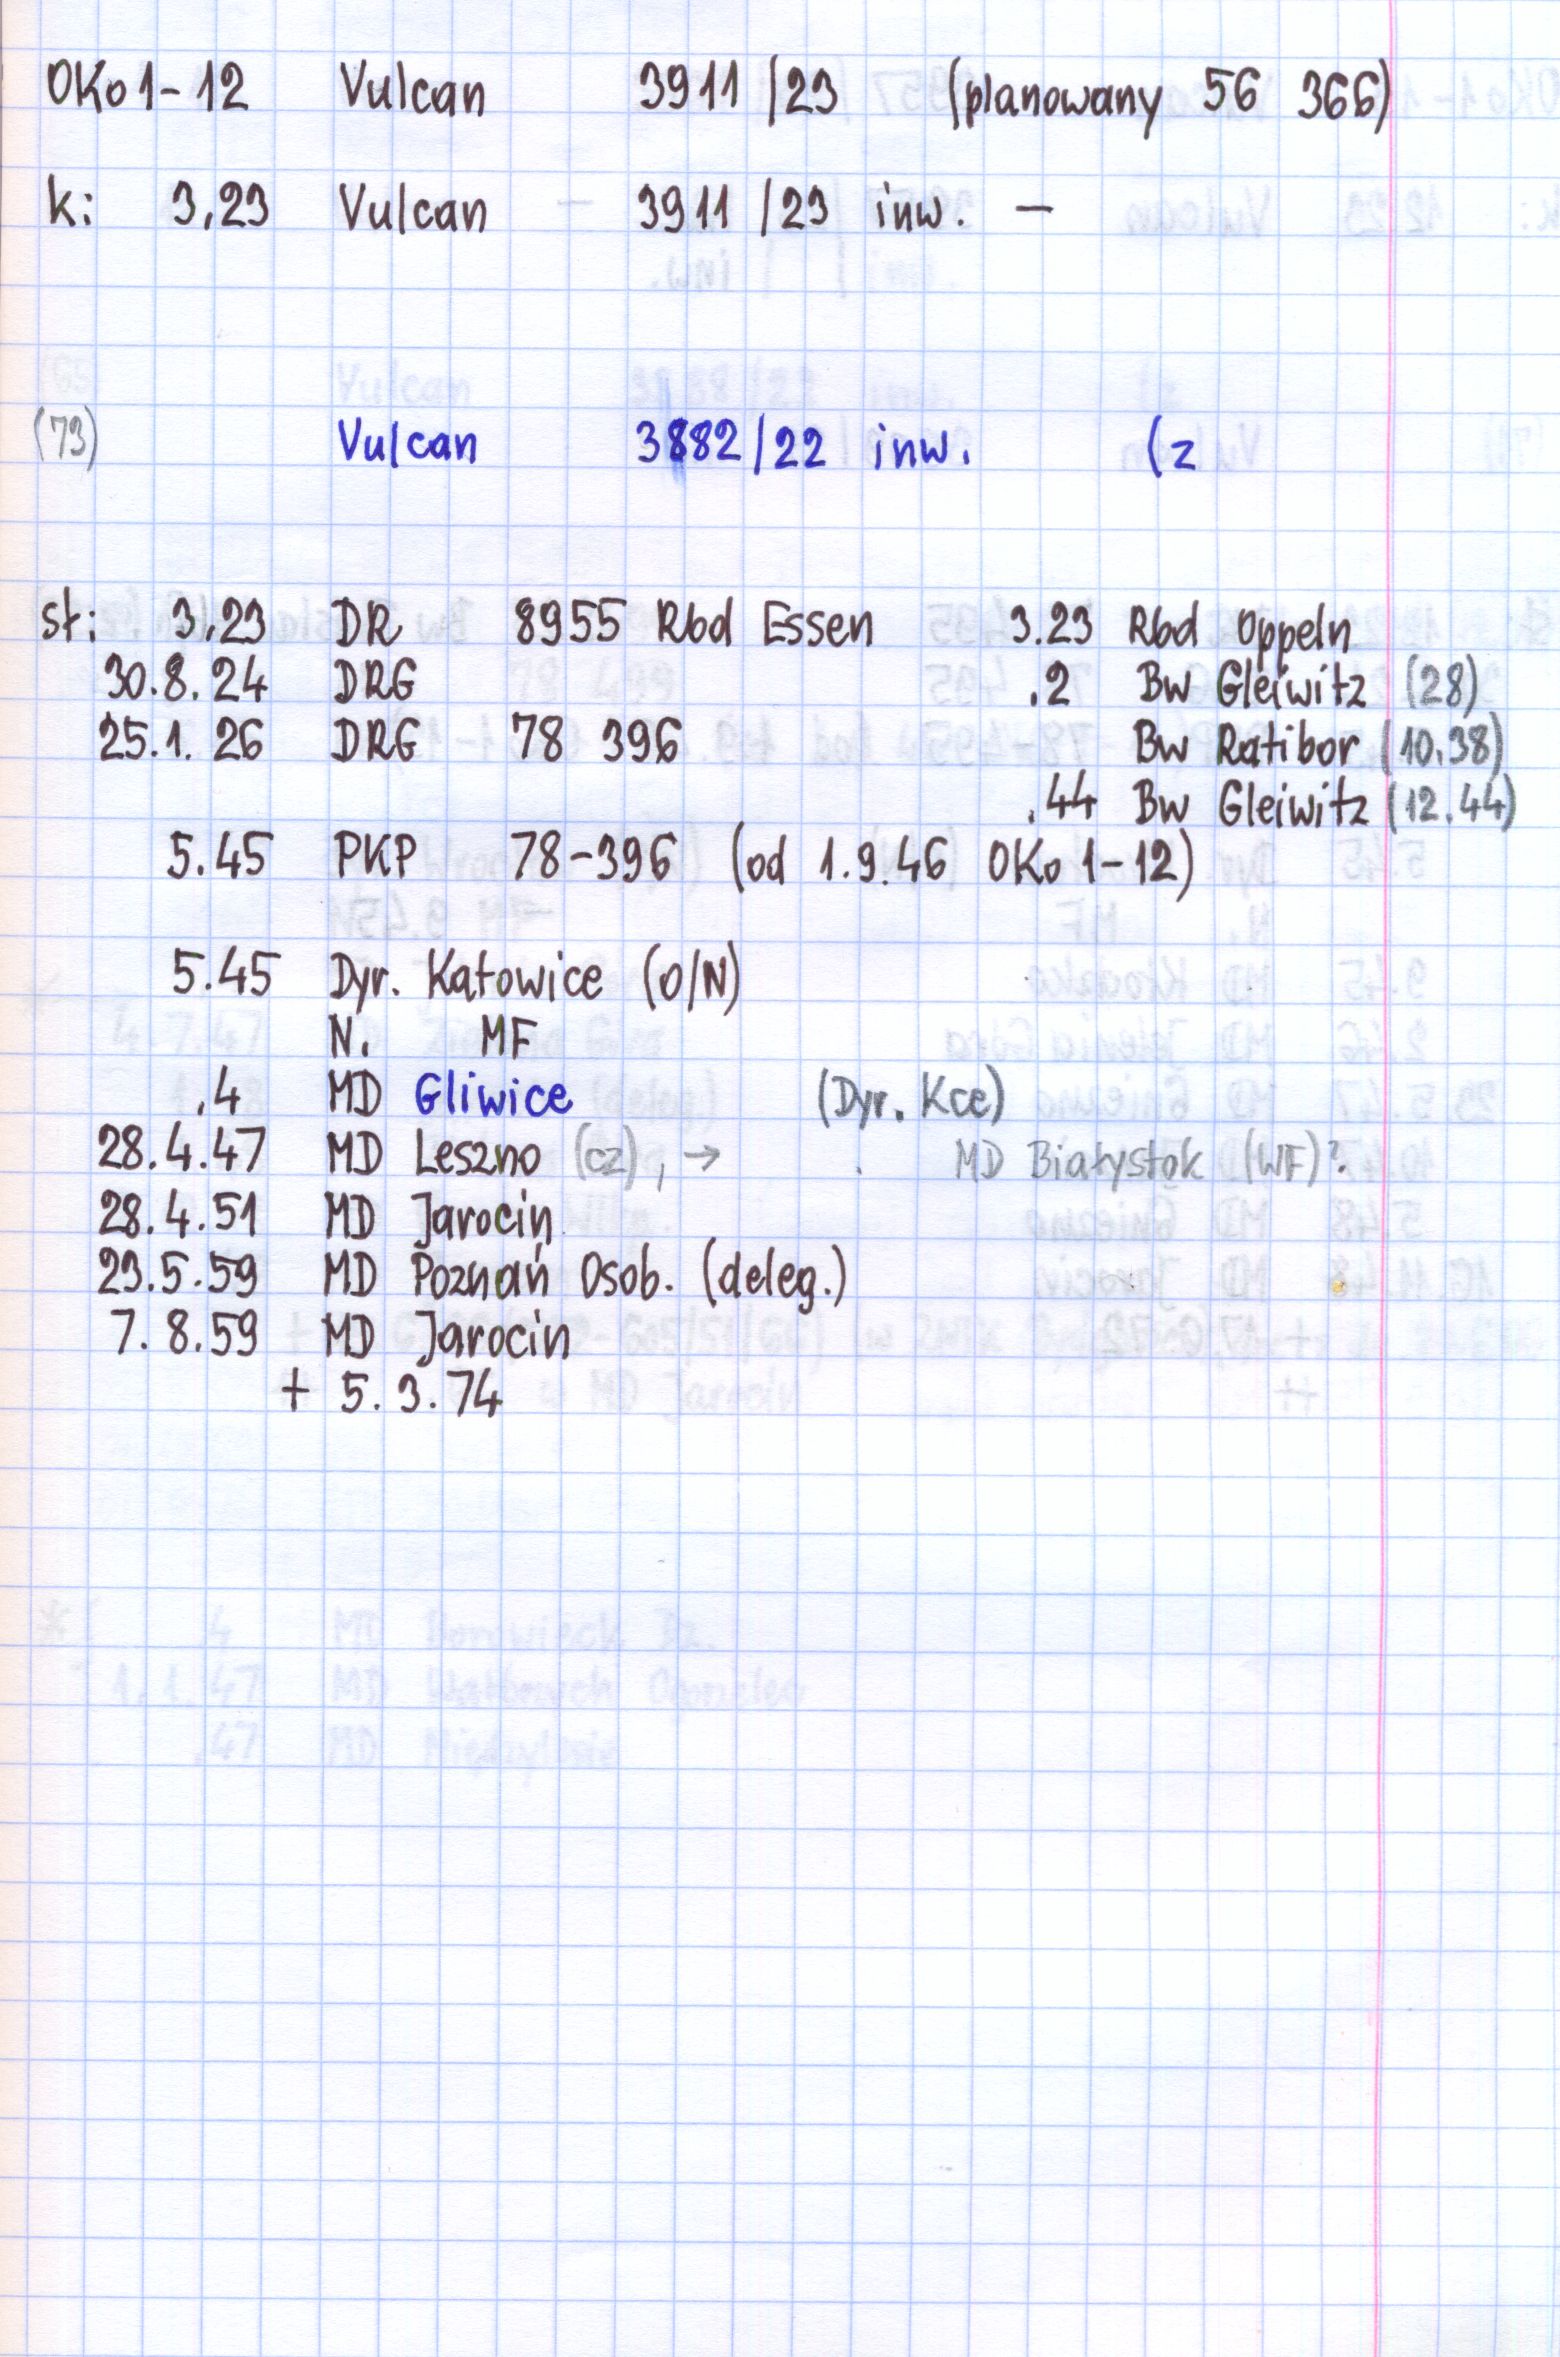 OKo1-12 Vulcan 3911/23 (planowany 56 366)
k: 3.23 Vulcan - 3911/23 inw. -
(73) Vulcan 3882/22 inw. (z
st: 3.23 DR 8955 Rbd Essen 3.23 Rbd Oppeln
30.8.24 DRG .2 Bw Gleiwitz (28)
25.1.26 DRG 78 396 Bw Ratibor (10.38)
.44 Bw Gleiwitz (12.44)
5.45 PKP 78-396 (od 1.9.46 OKo1-12)
5.45 Dyr. Katowice (O/N)
N. MF
.4 MD Gliwice (Dyr. Kce)
28.4.47 MD Leszno (cz), → MD Białystok (WF)?
28.4.51 MD Jarocin
23.5.59 MD Poznań Osob. (deleg.)
7.8.59 MD Jarocin
+ 5.3.74